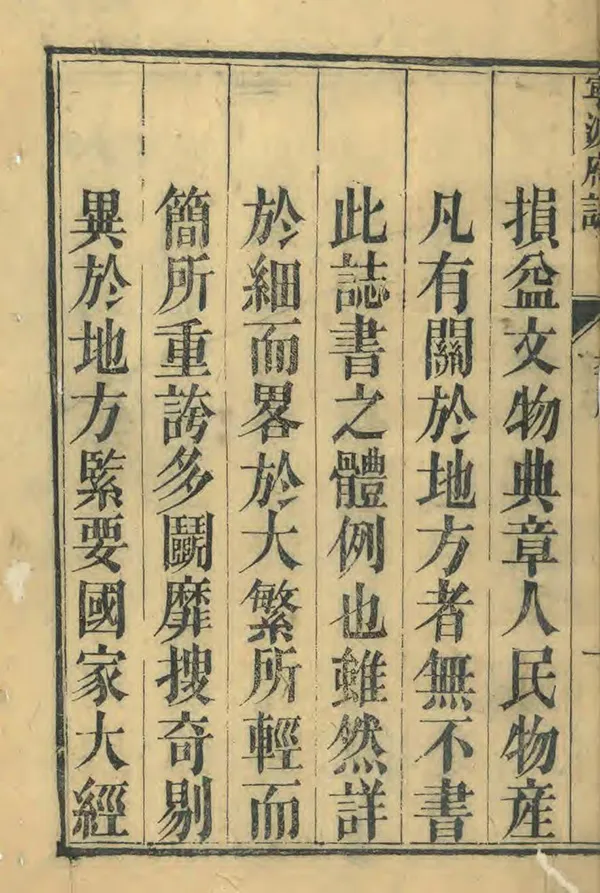 寧波府誌
損益文物典章人民物產
凡有關於地方者無不書
此誌書之體例也雖然詳
於細而畧於大繁所輕而
簡所重誇多鬭靡搜奇剔
異於地方緊要國家大經